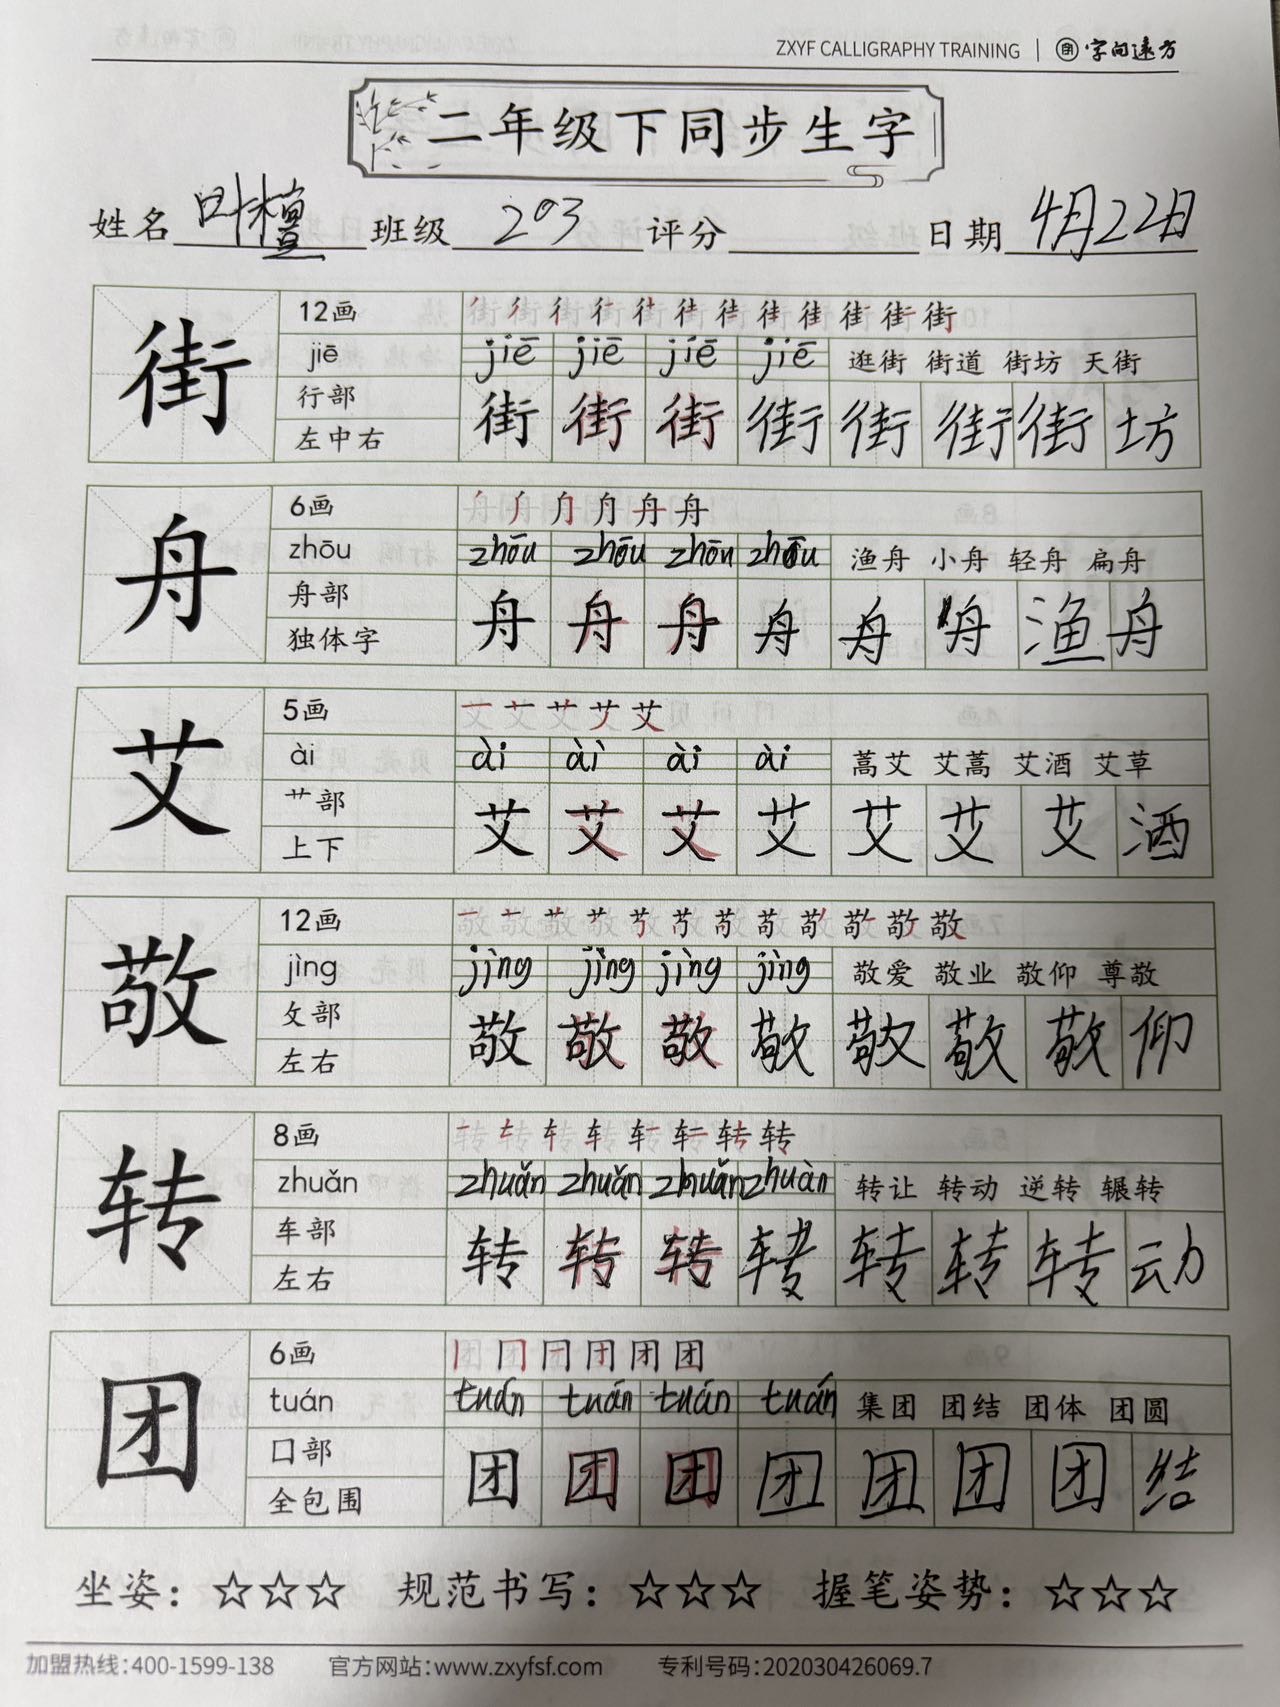 ZXYF CALLIGRAPHY TRAINING | 字向远方
二年级下同步生字
姓名 叶檀 班级 203 评分 日期 4月22日
街 12画
jiē jiē jiē jiē jiē 逛街 街道 街坊 天街
行部
左中右
街 街 街 街 街 街 街 坊
舟 6画
zhōu zhōu zhōu zhōu zhōu 渔舟 小舟 轻舟 扁舟
舟部
独体字
舟 舟 舟 舟 舟 舟 渔 舟
艾 5画
ài ài ài ài ài 蒿艾 艾蒿 艾酒 艾草
艹部
上下
艾 艾 艾 艾 艾 艾 艾 酒
敬 12画
jìng jìng jìng jìng jìng 敬爱 敬业 敬仰 尊敬
攵部
左右
敬 敬 敬 敬 敬 敬 敬 仰
转 8画
zhuǎn zhuǎn zhuǎn zhuǎn zhuàn 转让 转动 逆转 辗转
车部
左右
转 转 转 转 转 转 转 动
团 6画
tuán tuán tuán tuán tuán 集团 团结 团体 团圆
囗部
全包围
团 团 团 团 团 团 团 结
坐姿：☆☆☆ 规范书写：☆☆☆ 握笔姿势：☆☆☆
加盟热线：400-1599-138 官方网站：www.zxyfsf.com 专利号码：202030426069.7